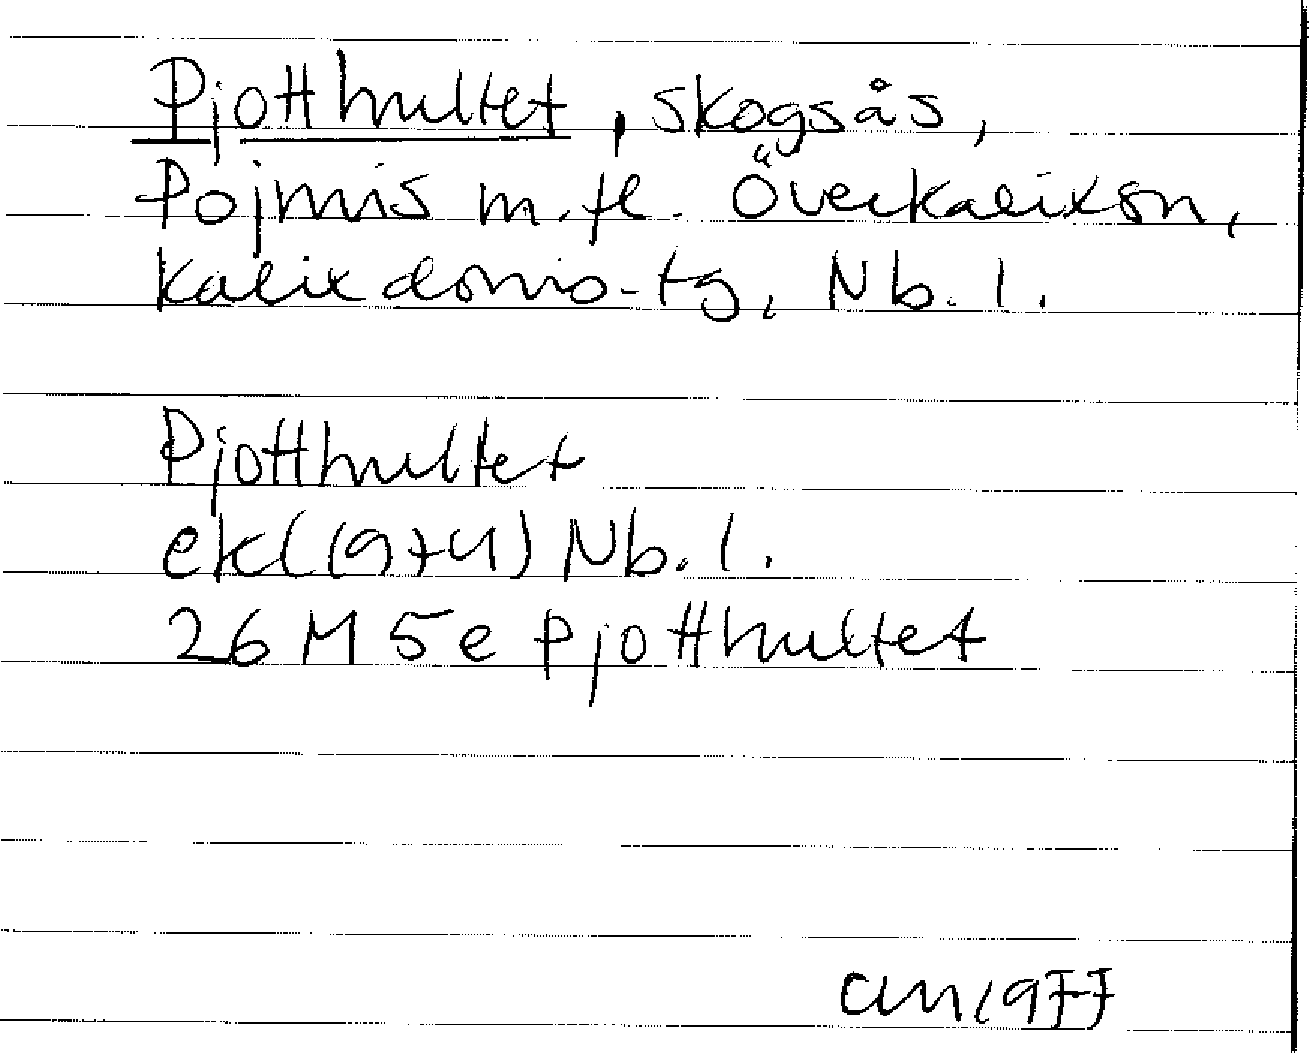 Pjotthultet, skogsås,
Pojmis m.fl. Överkalix sn,
Kalix doms-tg, Nb. l.
Pjotthultet
ekl (1974) Nb. l.
26 M 5e Pjotthultet
1977